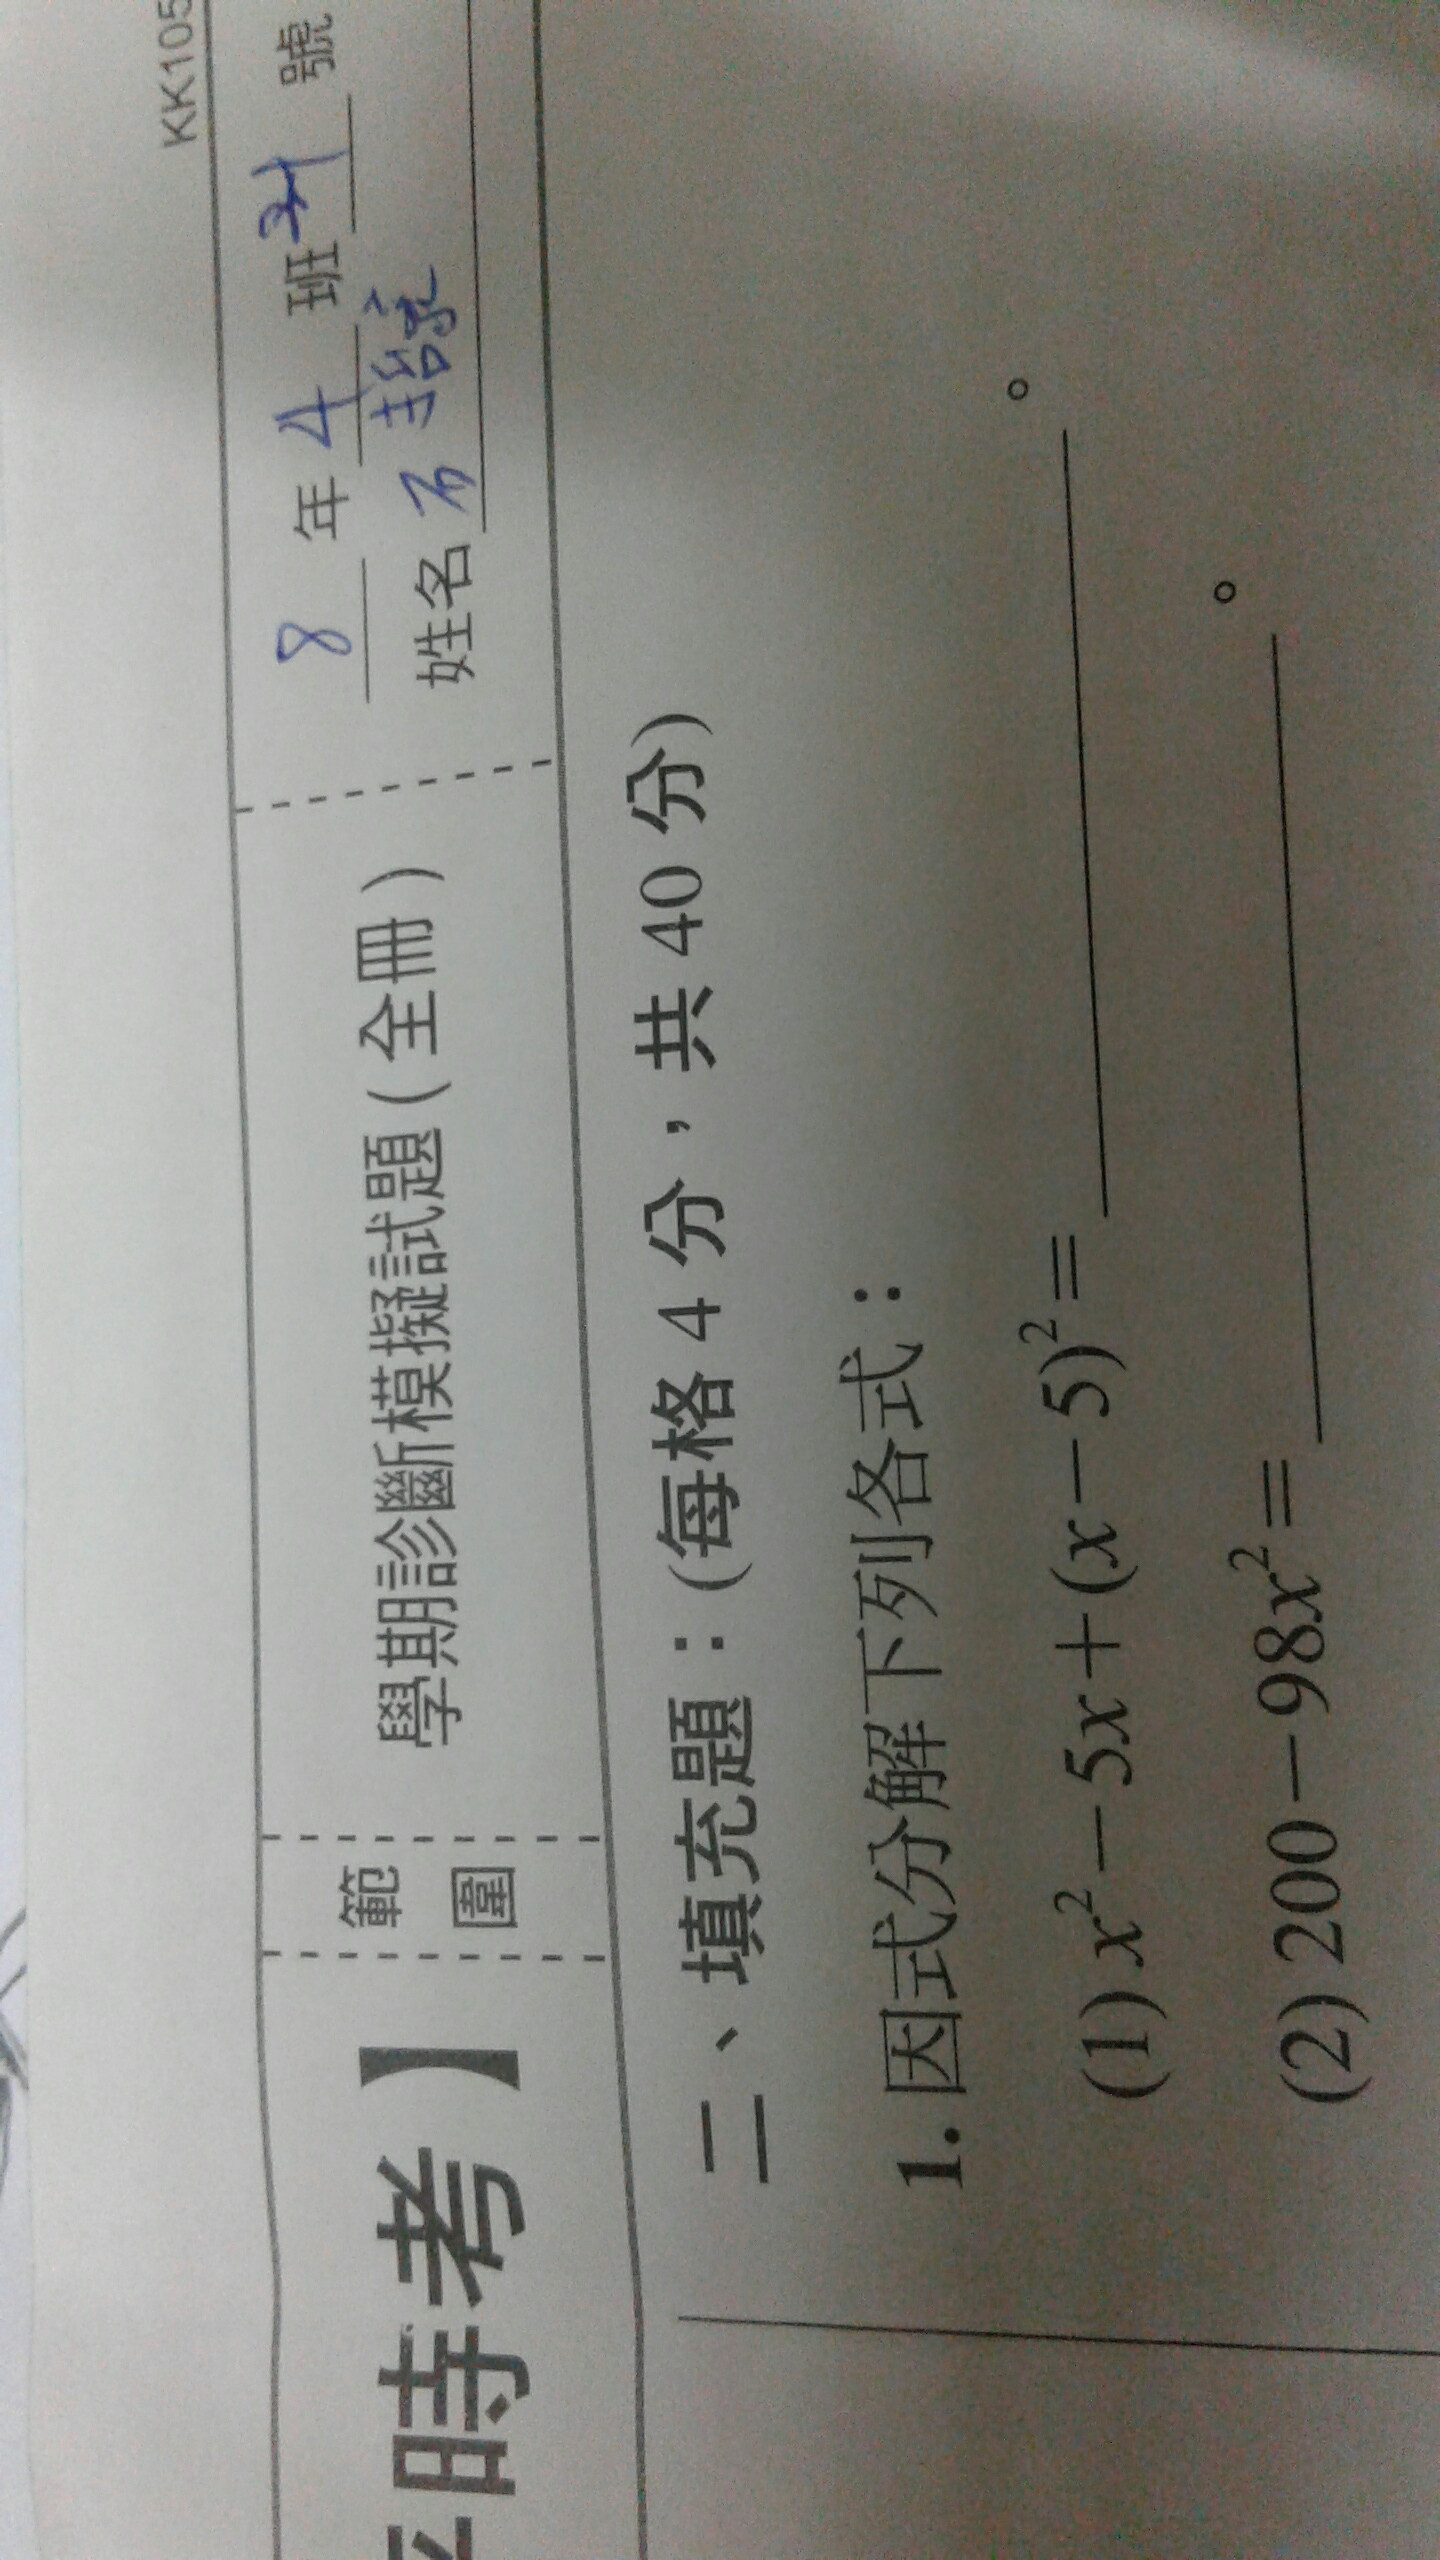 KK105
8 年 4 班 21 號
姓名
範圍
學期診斷模擬試題(全冊)
時考】
二、填充題：(每格 4 分，共 40 分)
1. 因式分解下列各式：
(1) x²－5x＋(x－5)²＝ 。
(2) 200－98x²＝ 。